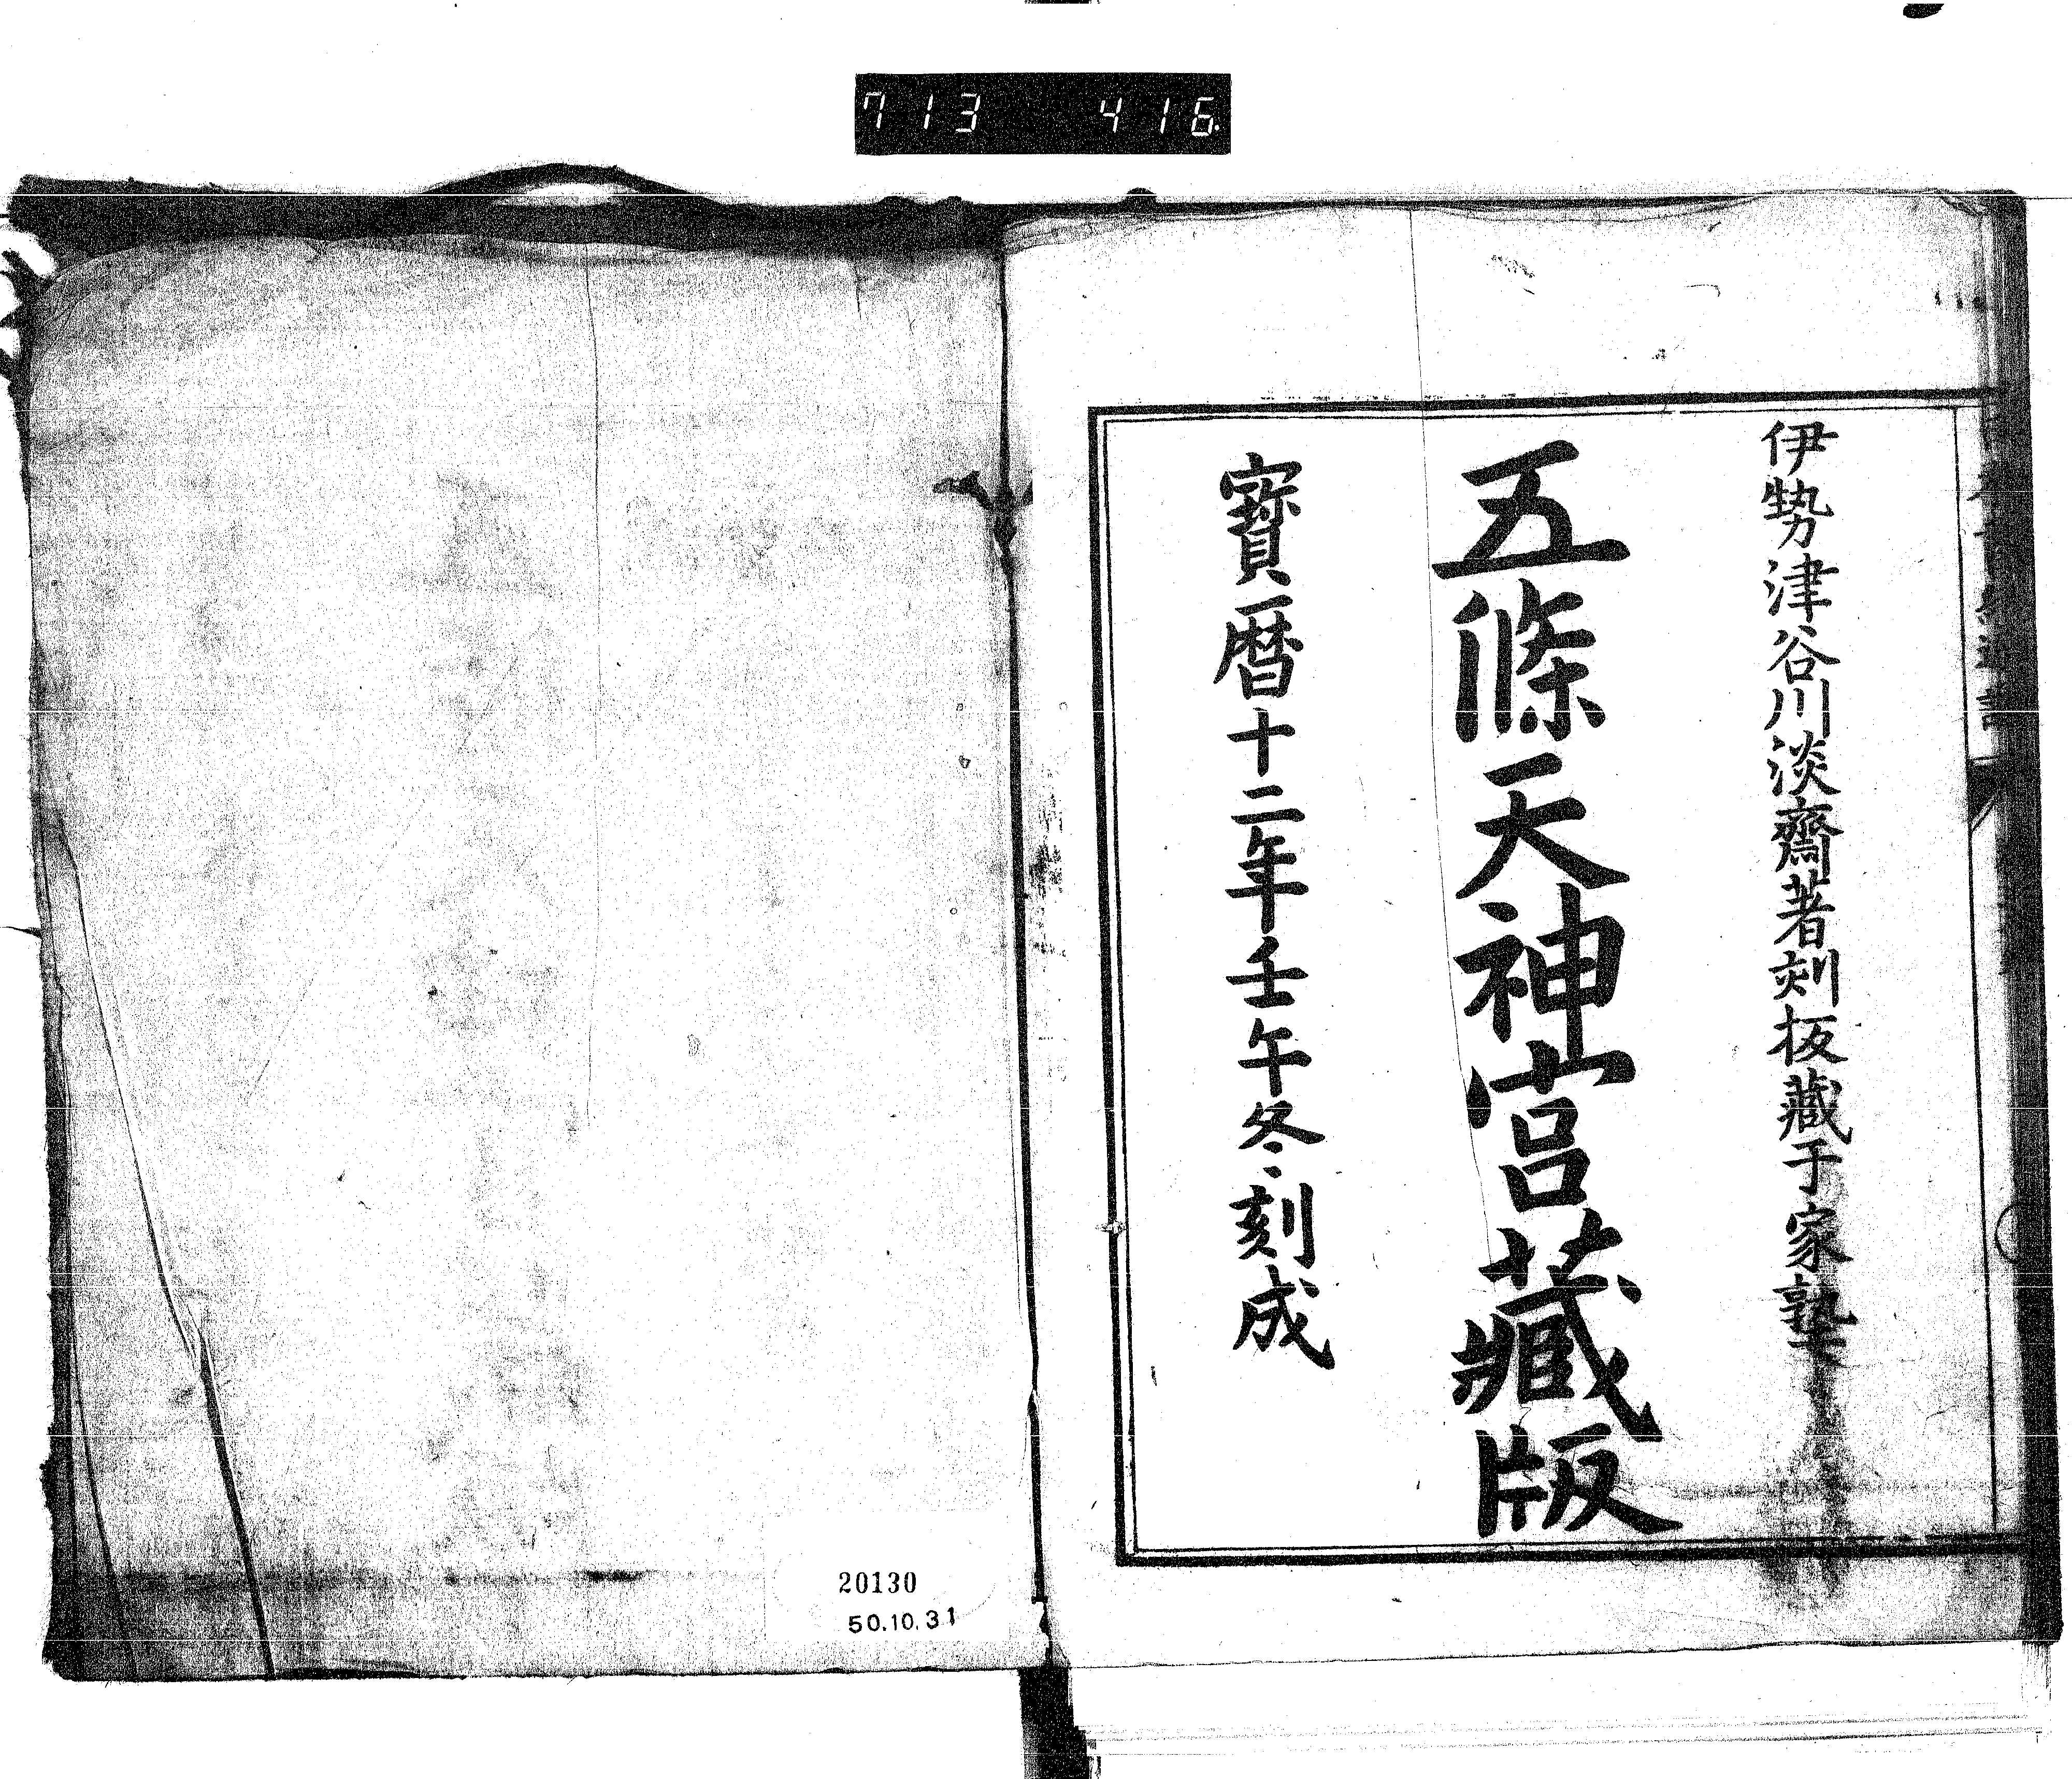 713 416.
伊勢津谷川淡齋著刻板藏于家塾
五條天神宮藏版
寶曆十二年壬午冬刻成
20130
50.10.31